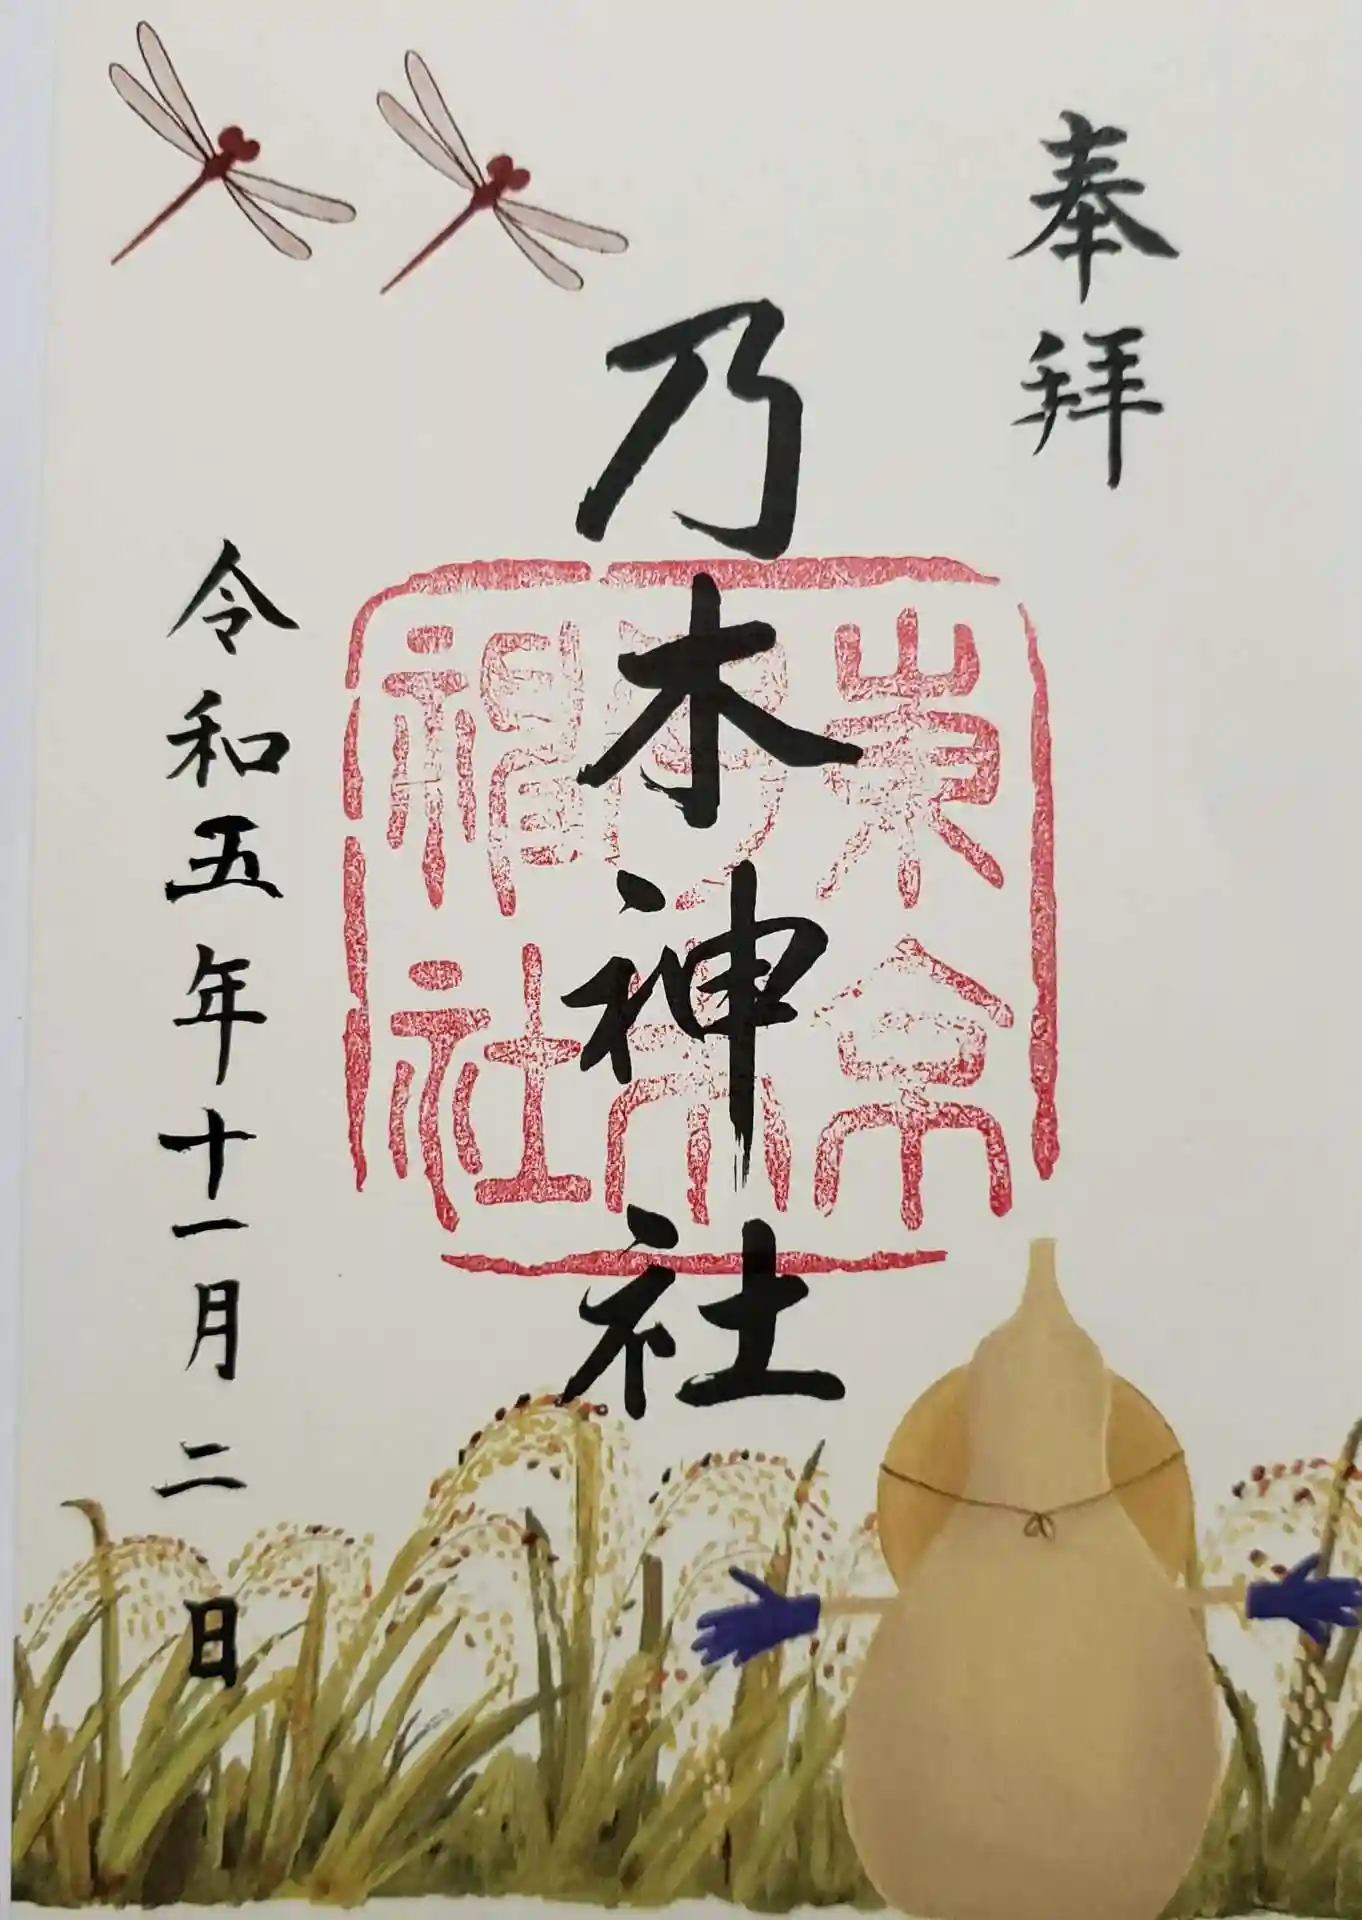 奉拝
乃木神社
東京
乃木
神社
令和五年十一月二日